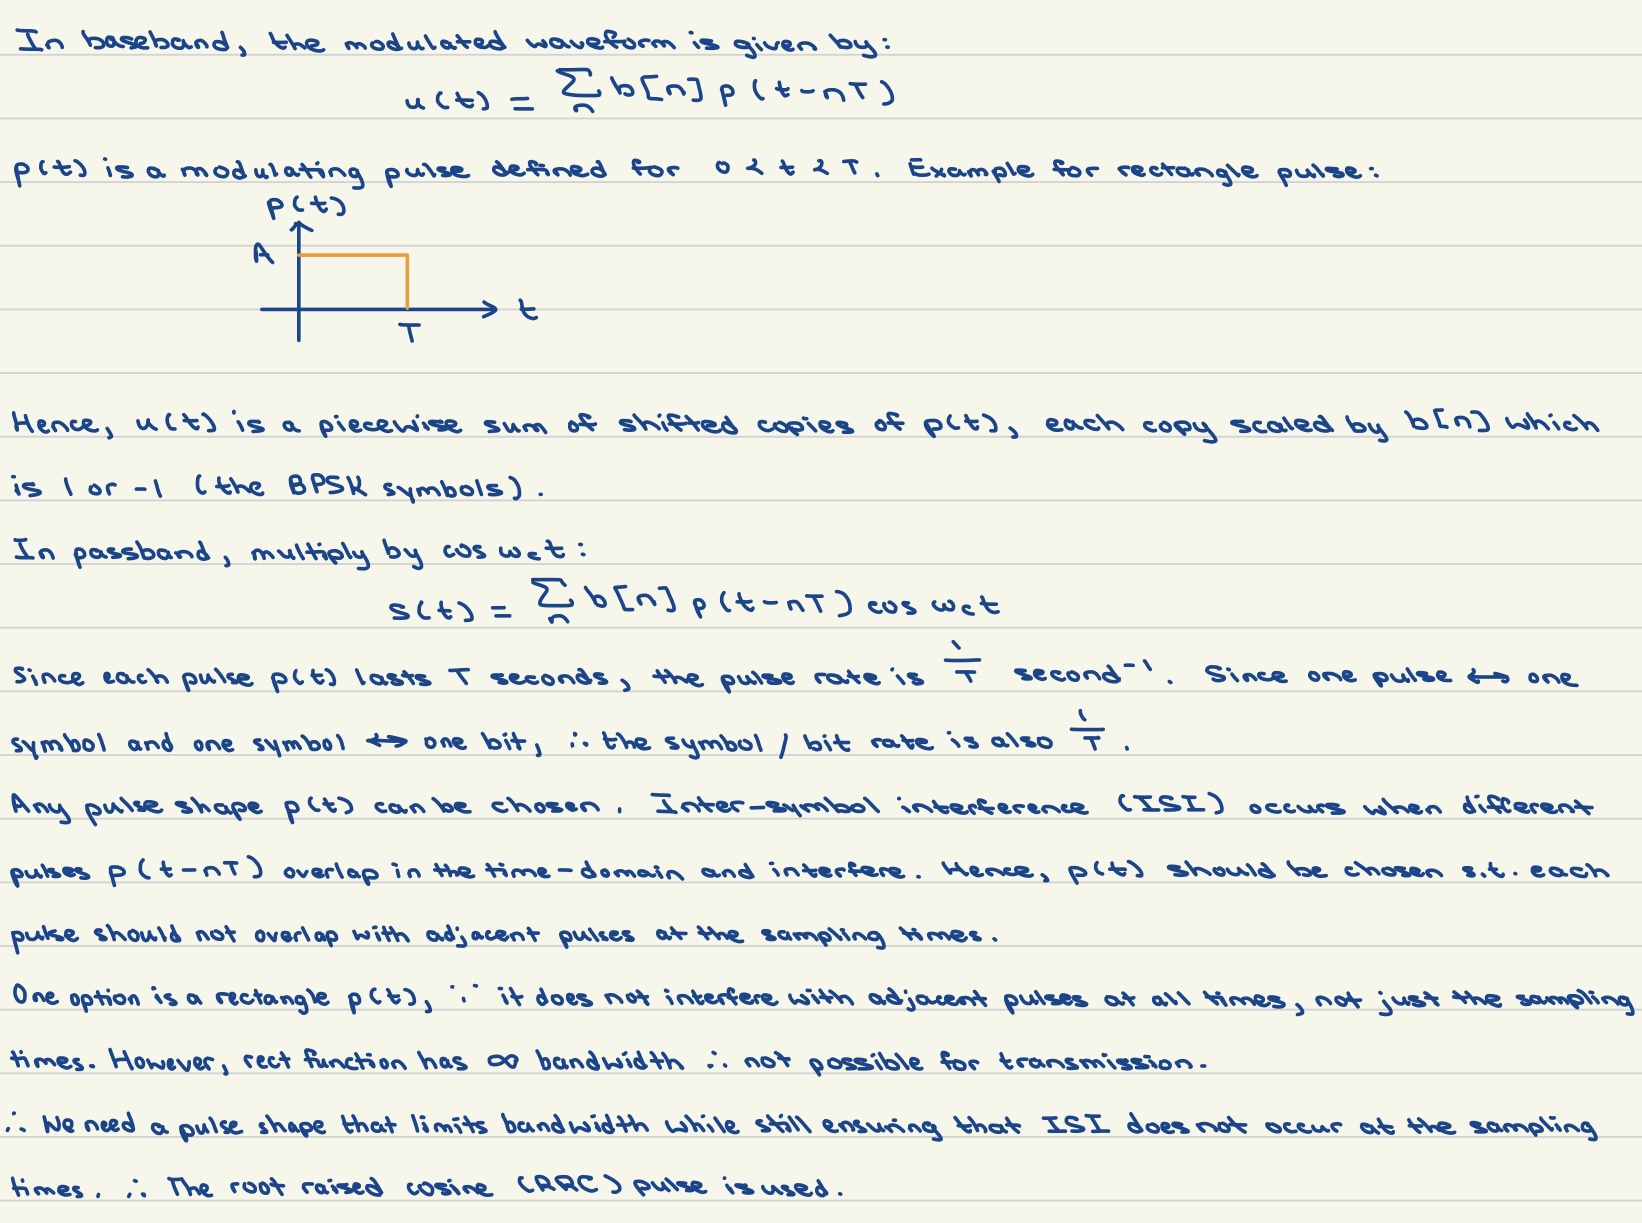 In baseband, the modulated waveform is given by:
u(t) = ∑_n b[n] p(t-nT)
p(t) is a modulating pulse defined for 0 < t < T. Example for rectangle pulse:
p(t)
A
t
T
Hence, u(t) is a piecewise sum of shifted copies of p(t), each copy scaled by b[n] which
is 1 or -1 (the BPSK symbols).
In passband, multiply by cos ω_c t:
s(t) = ∑_n b[n] p(t-nT) cos ω_c t
Since each pulse p(t) lasts T seconds, the pulse rate is 1/T second⁻¹. Since one pulse ↔ one
symbol and one symbol ↔ one bit, ∴ the symbol / bit rate is also 1/T.
Any pulse shape p(t) can be chosen. Inter-symbol interference (ISI) occurs when different
pulses p(t-nT) overlap in the time-domain and interfere. Hence, p(t) should be chosen s.t. each
pulse should not overlap with adjacent pulses at the sampling times.
One option is a rectangle p(t), ∵ it does not interfere with adjacent pulses at all times, not just the sampling
times. However, rect function has ∞ bandwidth ∴ not possible for transmission.
∴ We need a pulse shape that limits bandwidth while still ensuring that ISI does not occur at the sampling
times. ∴ The root raised cosine (RRC) pulse is used.